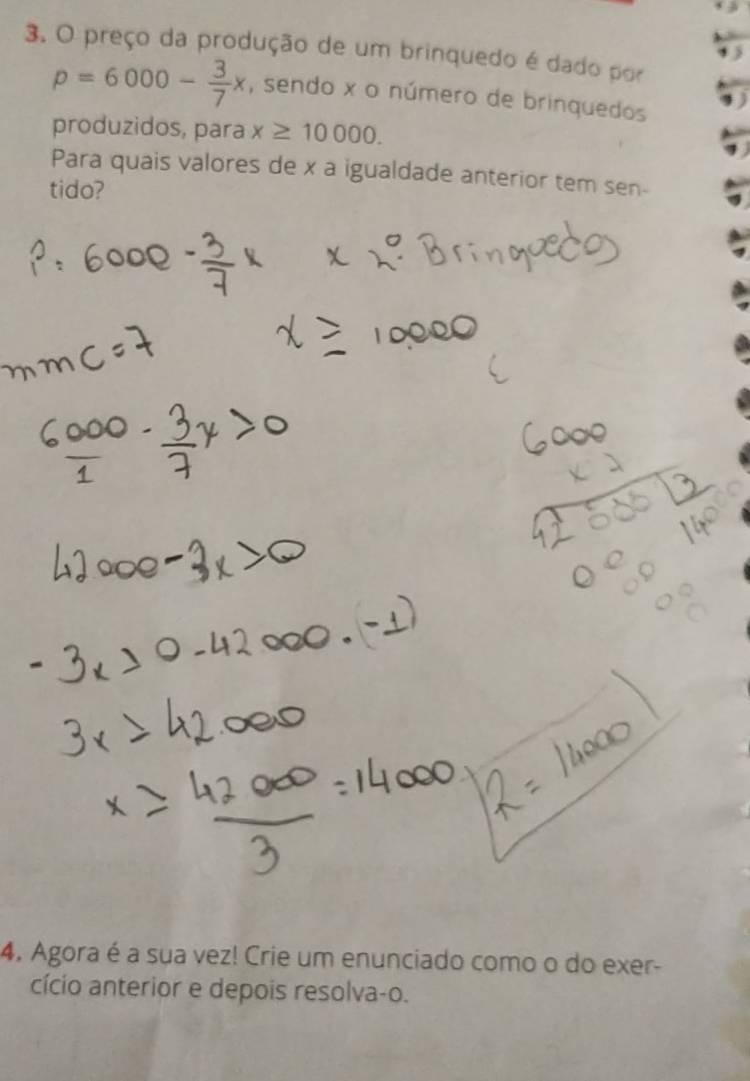 3. O preço da produção de um brinquedo é dado por
p = 6 000 − 3/7 x, sendo x o número de brinquedos
produzidos, para x ≥ 10 000.
Para quais valores de x a igualdade anterior tem sen-
tido?
P: 6000 - 3/7 x x nº Brinquedos
mmc = 7 x ≥ 10.000
6000/1 - 3/7 x > 0
6000
x 7
42000 - 3x > 0
42000 3
14000
- 3x > 0 - 42000 . (-1)
3x ≥ 42.000
x ≥ 42000/3 = 14000
R = 14000
4. Agora é a sua vez! Crie um enunciado como o do exer-
cício anterior e depois resolva-o.